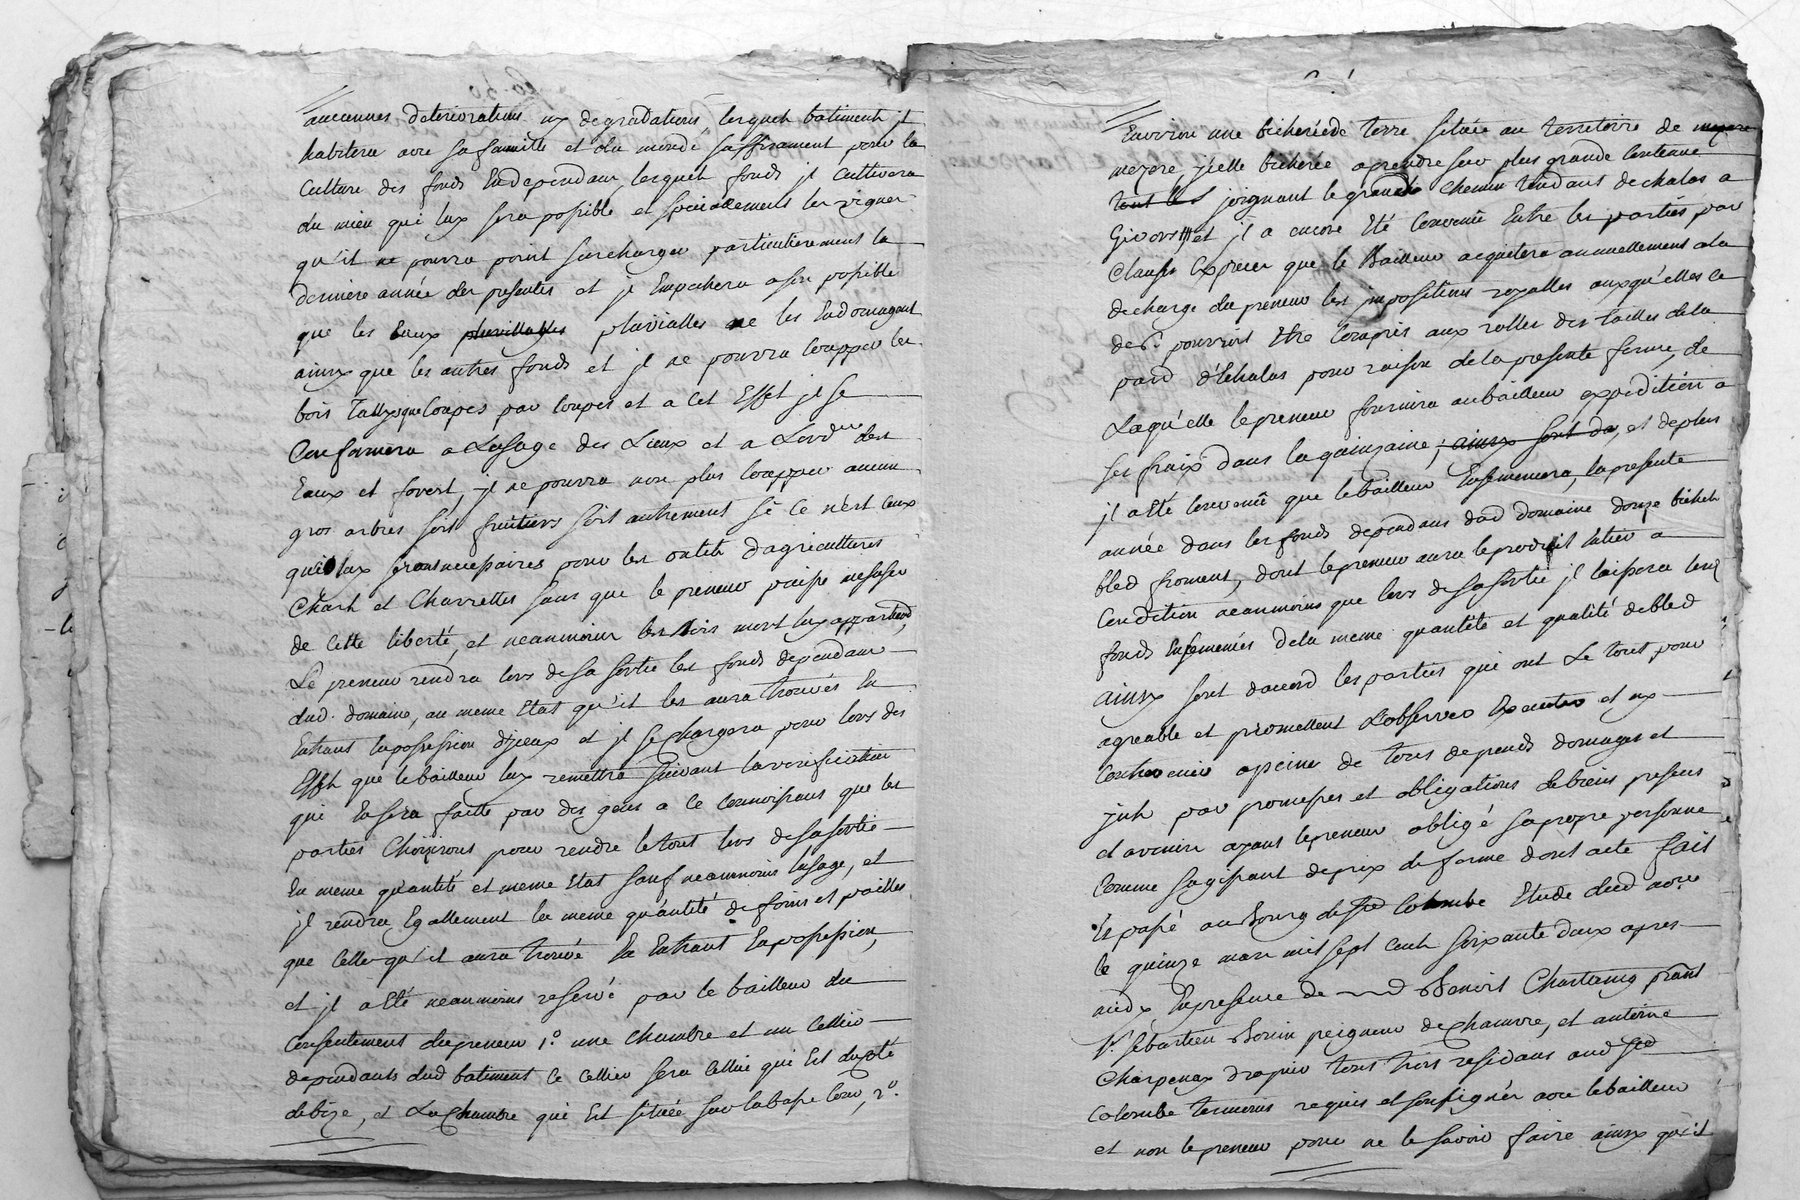 aucunnes deteriorations ny degradations, lesquels batiments jl
habitera avec sa famille et du monde suffisament pour la
Culture des fonds En dependans, lesquels fonds jl Cultivera
du mieu qui luy sera possible et specialement les vignes
qu'il ne pourra point surcharger particulierement la
derniere année des presentes et jl Empechera a son possible
que les Eaux pluvialles ne les Endomagent
ainsy que les autres fonds et jl ne pourra Coupper les
bois Taillys que Coupes par Coupes et a Cet Effet jl se
Conformera a Lusage des Lieux et a Lord.ce des
Eaux et forest, jl ne pourra non plus Coupper aucun
gros arbres soit fruitiers soit autrement sy Ce n'est Ceux
qui luy seront necessaires pour les outils d'agricultures
Chars et Charrettes sans que le preneur puisse mesuser
de Cette liberté, et neanmoins les bois morts luy appartiend.
Le preneur rendra lors de sa sortie les fonds dependans
dud. domaine, au meme Etat qu'il les aura trouvés En
Entrant En possession d'jceux et jl se Chargera pour lors des
Effets que le bailleur luy remettra suivant la verification
qui En sera faitte par des gens a Ce Connoissans que les
parties Choisirons pour rendre le tout lors de sa sortie
En meme quantité et meme Etat sauf neanmoins lusage, et
jl rendra Egallement la meme quantité de foins et pailles
que Celle qu'il aura trouvé En Entrant En possession,
et jl a Eté neanmoins reservé par le bailleur du
Consentement du preneur 1.o une Chambre et un Cellier
dependants dud batiment le Cellier sera Celluy qui Est du coté
de bize, et La Chambre qui Est située sur la basse Cour, 2.o
Environ une bicherée de terre située au territoire de
mezere, jcelle bicherée a prendre sur plus grande Contenue
joignant le grand Chemin tendant de chalas a
Givors et jl a encore Eté Convenu Entre les parties par
Clause Expresse que le Bailleur acquittera annuellement a la
decharge du preneur les jmpositions royalles auxquelles Ce
der. pourroit Etre Compris aux rolles des tailles de la
par. d'Echalas pour raison de la presente ferme, de
Laquelle le preneur fournira au bailleur expedition a
ses fraix dans la quinzaine, ainsy sont da, et de plus
jl a Eté Convenu que le bailleur Ensemencera, la presente
année dans les fonds dependans dud domaine douze bichets
bled froment, dont le preneur aura le produit Entier a
Condition neanmoins que lors de sa sortie jl laissera les
fonds Ensemencés de la meme quantité et qualité de bled
ainsy sont daccord les parties qui ont Le tout pour
agreable et promettent L'observer Executer et ny
Contrevenir a peine de tous depends domages et
jnts par promesses et obligations de biens presens
et avenir ayant le preneur obligé sa propre personne
Comme sagissant de prix de ferme dont acte fait
et passé au bourg de Ste Colombe Etude dud no.re
le quinze mars mil sept cents soixante deux apres
midy En presence de Benoit Chantemy
s.r sebastien Bonin peigneur de Chanvre, et antoine
Charpenay drapier tous trois residans aud Ste
Colombe temoins requis et soussignés avec le bailleur
et non le preneur pour ne le savoir faire ainsy qu'il